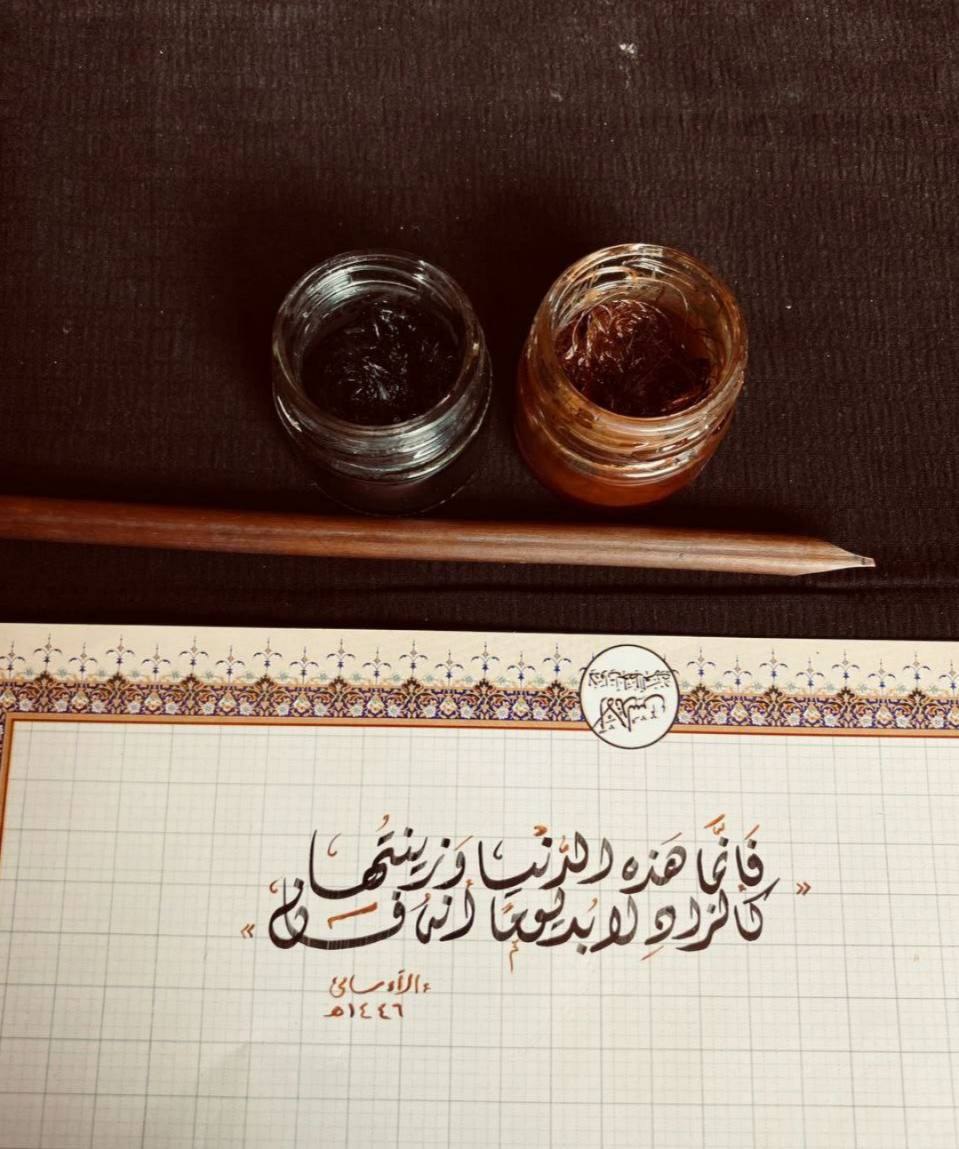 « فَإنَّما هَذه الدُّنْيا وَزينتُها
كالزادِ لا بُد يومًا أنهُ فان »
١٤٤٦هـ